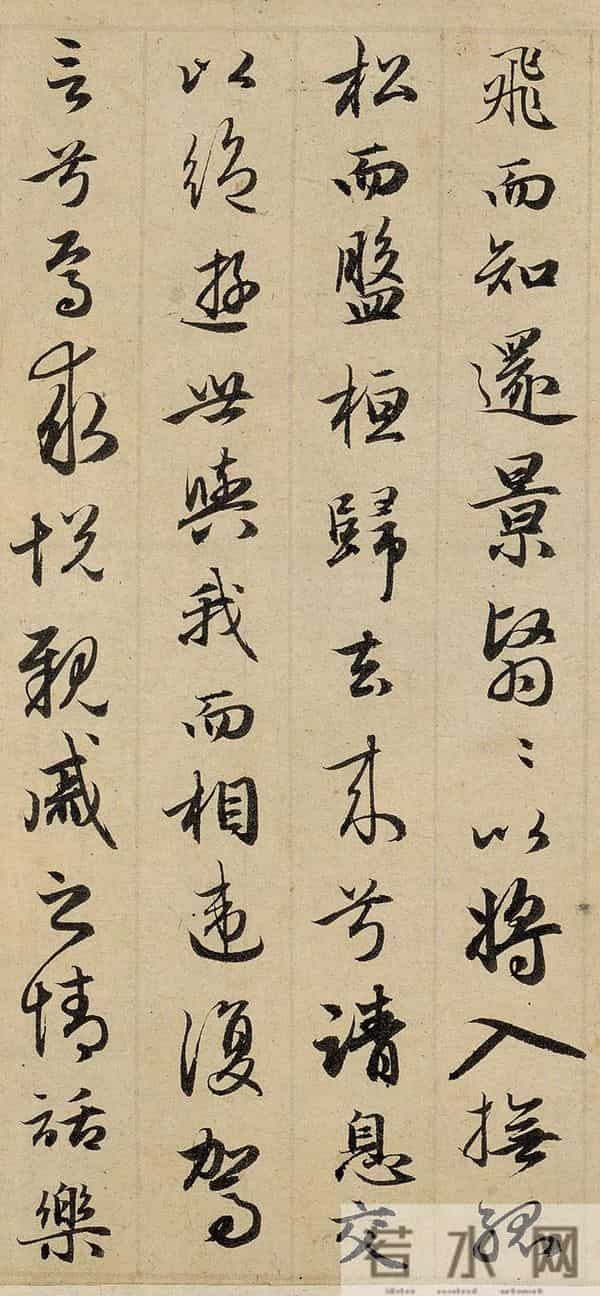 飛而知還景翳〻以將入撫孤
松而盤桓歸去来兮請息交
以絶遊世與我而相違復駕
言兮焉求悅親戚之情話樂
若水网